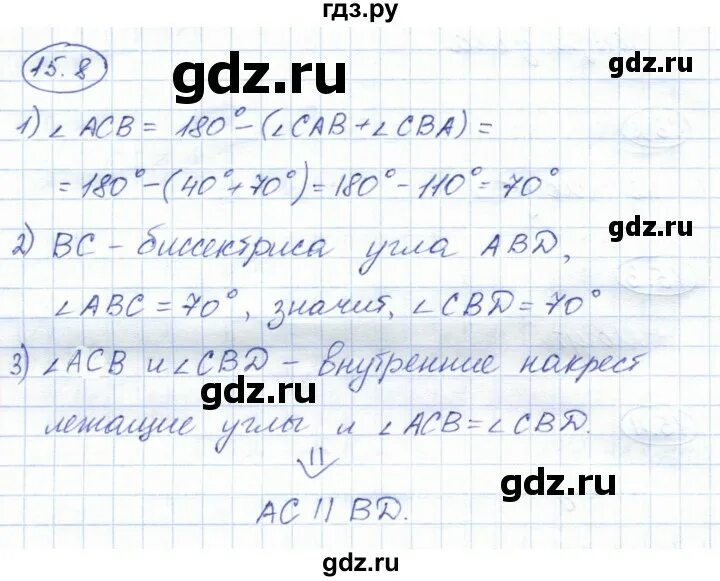 гдз.ру
15.8
gdz.ru
gdz.ru
1) ∠ ACB = 180° - (∠CAB + ∠CBA) =
= 180° - (40° + 70°) = 180° - 110° = 70°
gdz.ru
2) BC - биссектриса угла ABD,
∠ABC = 70°, значит, ∠CBD = 70°
3) ∠ACB и ∠CBD - внутренние накрест
gdz.ru
gdz.ru
лежащие углы и ∠ACB = ∠CBD.
⇓
gdz.ru
AC || BD.
gdz.ru